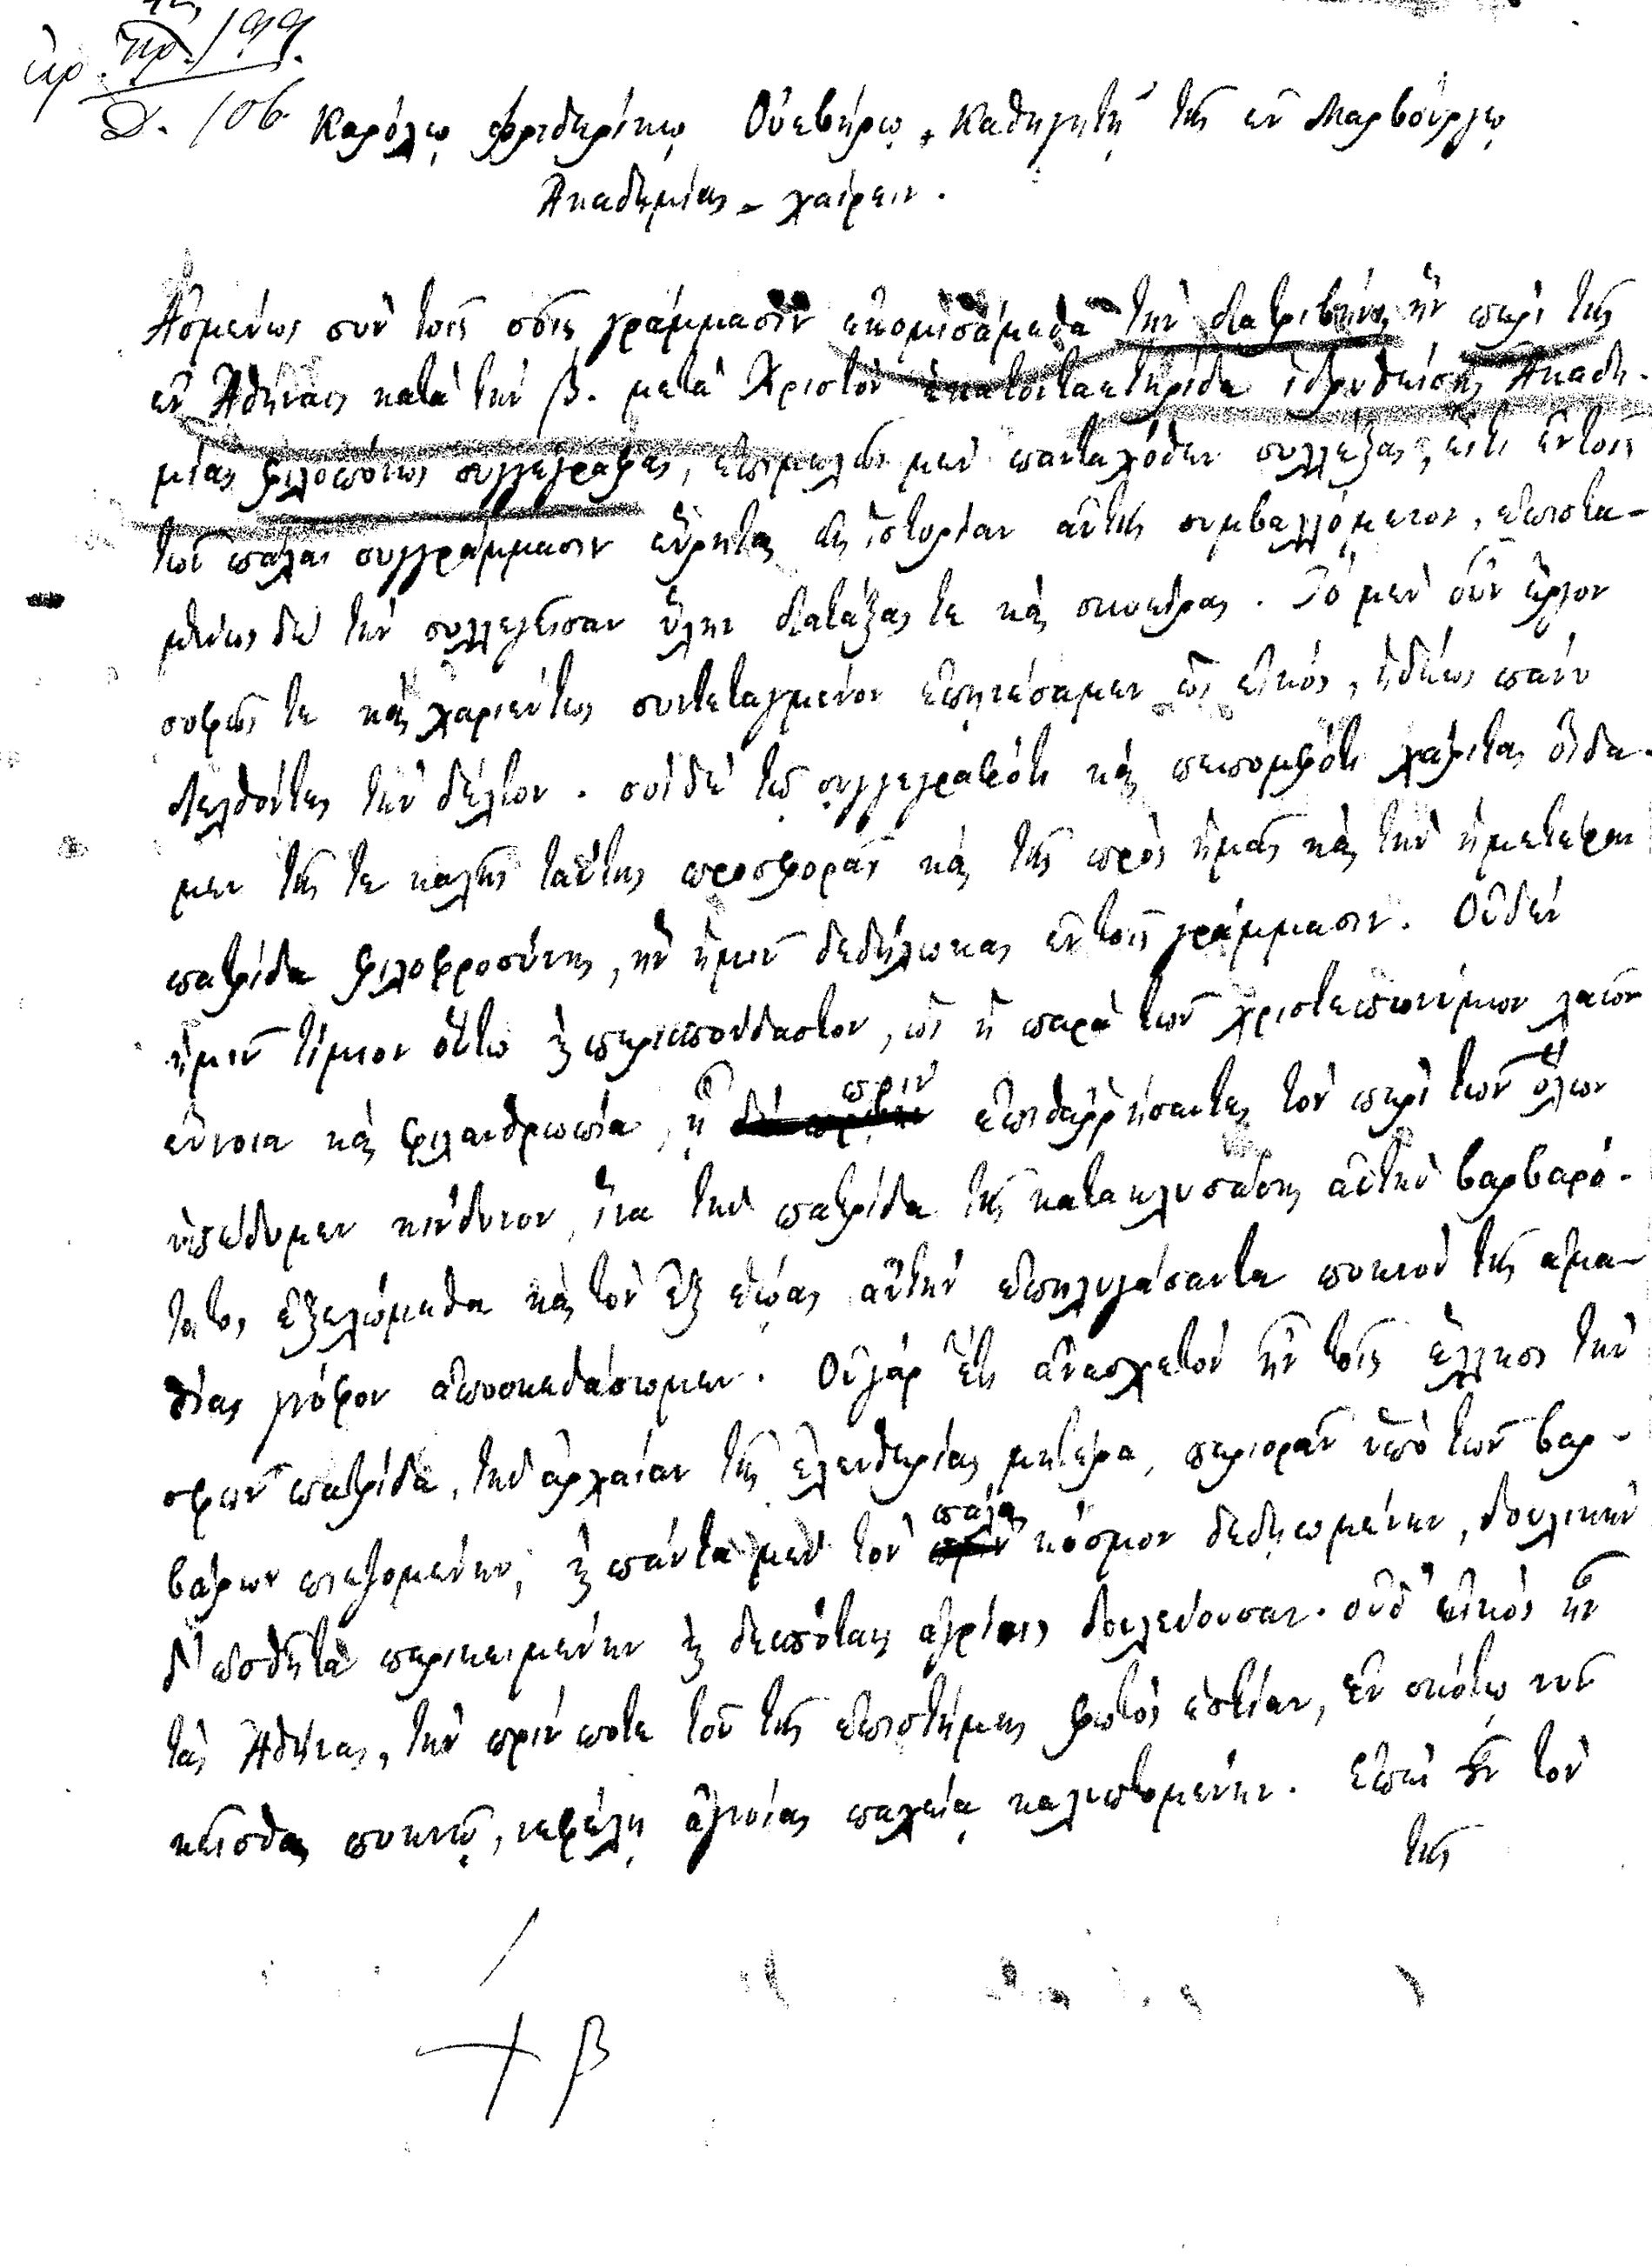 ἀρ. 199.
Δ. 106
Καρόλῳ Φριδερίκῳ Οὐεβήρῳ, Καθηγητῇ τῆς ἐν Μαρβούργῳ
Ἀκαδημίας – χαίρειν.
Ἀσμένως σὺν τοῖς σοῖς γράμμασιν ἐκομισάμεθα τὴν διατριβὴν, ἣν περὶ τῆς
ἐν Ἀθήναις κατὰ τὴν β. μετὰ Χριστὸν ἑκατονταετηρίδα ἱδρυθείσης Ἀκαδη-
μίας φιλοπόνως συγγέγραφας, ἐπιμελῶς μὲν πανταχόθεν συλλέξας, εἴτι ἐν τοῖς
τῶν πάλαι συγγράμμασιν εὕρηται εἰς ἱστορίαν αὐτῆς συμβαλλόμενον, ἐπιστα-
μένως δὲ τὴν συλλεγεῖσαν ὕλην διατάξας τε καὶ συνείρας. Τὸ μὲν οὖν ἔργον
σοφῶς τε καὶ χαριέντως συντεταγμένον ἐπῃνέσαμεν ὡς εἰκός, ἡδέως πάνυ
διελθόντες τὴν δέλτον. σοὶ δὲ τῷ συγγεγραφότι καὶ πεπομφότι χάριτας οἴδα-
μεν τῆς τε καλῆς ταύτης προσφορᾶς καὶ τῆς πρὸς ἡμᾶς καὶ τὴν ἡμετέραν
πατρίδα φιλοφροσύνης, ἣν ἡμῖν δεδήλωκας ἐν τοῖς γράμμασιν. Οὐδὲν
ἡμῖν τίμιον οὕτω καὶ περισπούδαστον, ὡς ἡ παρὰ τῶν χριστεπωνύμων λαῶν
εὔνοια καὶ φιλανθρωπία, ᾗ πρὶν ἐπιθαῤῥήσαντες τὸν περὶ τῶν ὅλων
ὑπέδυμεν κίνδυνον, ἵνα τὴν πατρίδα τῆς κατακλυσάσης αὐτὴν βαρβαρό-
τητος ἐξελώμεθα καὶ τὸν ἐξ ἑῴας αὐτὴν ἐπηλυγάσαντα πυκνὸν τῆς ἀμα-
θίας γνόφον ἀποσκεδάσωμεν. Οὐ γὰρ ἔτι ἀνασχετὸν ἦν τοῖς ἕλλησι τὴν
σφῶν πατρίδα, τὴν ἀρχαίαν τῆς ἐλευθερίας μητέρα, περιορᾶν ὑπὸ τῶν βαρ-
βάρων πιεζομένην, καὶ πάντα μὲν τὸν πάλαι κόσμον δεδῃωμένην, δουλικὴν
δ' ἐσθῆτα περικειμένην καὶ δεσπόταις ἀγρίοις δουλεύουσαν. οὐδ' εἰκὸς ἦν
τὰς Ἀθήνας, τὴν πρίν ποτε τοῦ τῆς ἐπιστήμης φωτὸς ἑστίαν, ἐν σκότῳ νῦν
κεῖσθαι πυκνῷ, νεφέλῃ ἀγνοίας παχείᾳ καλυπτομένην. Ἐπεὶ οὖν τὸν
τῆς
β